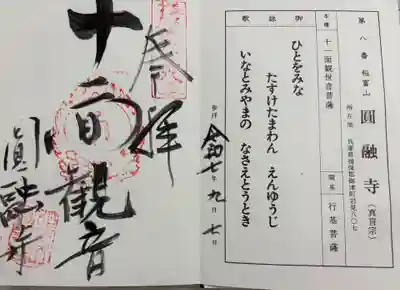 第八番 稲富山 圓融寺 (真言宗)
所在地 兵庫県揖保郡御津町岩見八〇七
本尊 十一面観世音菩薩 開基 行基菩薩
御詠歌
ひとをみな
たすけたまわん えんゆうじ
いなとみやまの なさえとうとき
参拝 令和七年 九月 七日
奉拝
十一面観音
圓融寺